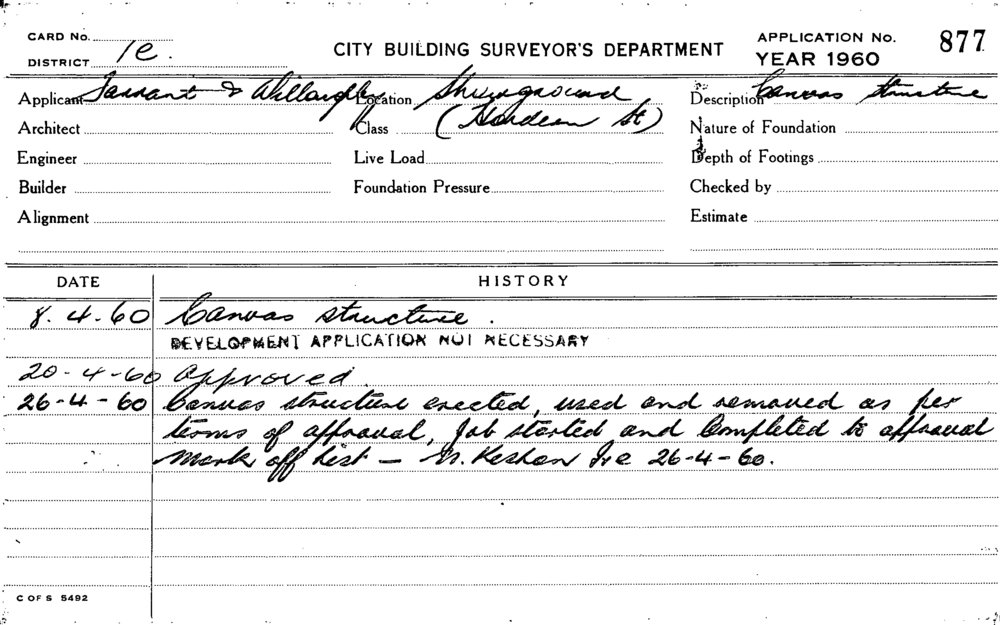 CARD No.
DISTRICT 1e.
CITY BUILDING SURVEYOR'S DEPARTMENT
APPLICATION No. 877
YEAR 1960
Applicant Tannant & Willoughby Location Showground Description Canvas structure
Architect Class (Hordern St) Nature of Foundation
Engineer Live Load Depth of Footings
Builder Foundation Pressure Checked by
Alignment Estimate
DATE HISTORY
8.4.60 Canvas structure.
DEVELOPMENT APPLICATION NOT NECESSARY
20-4-60 Approved.
26-4-60 Canvas structure erected, used and removed as per
terms of approval, Job started and Completed to approval
Mark off List - 26-4-60.
C OF S 5492